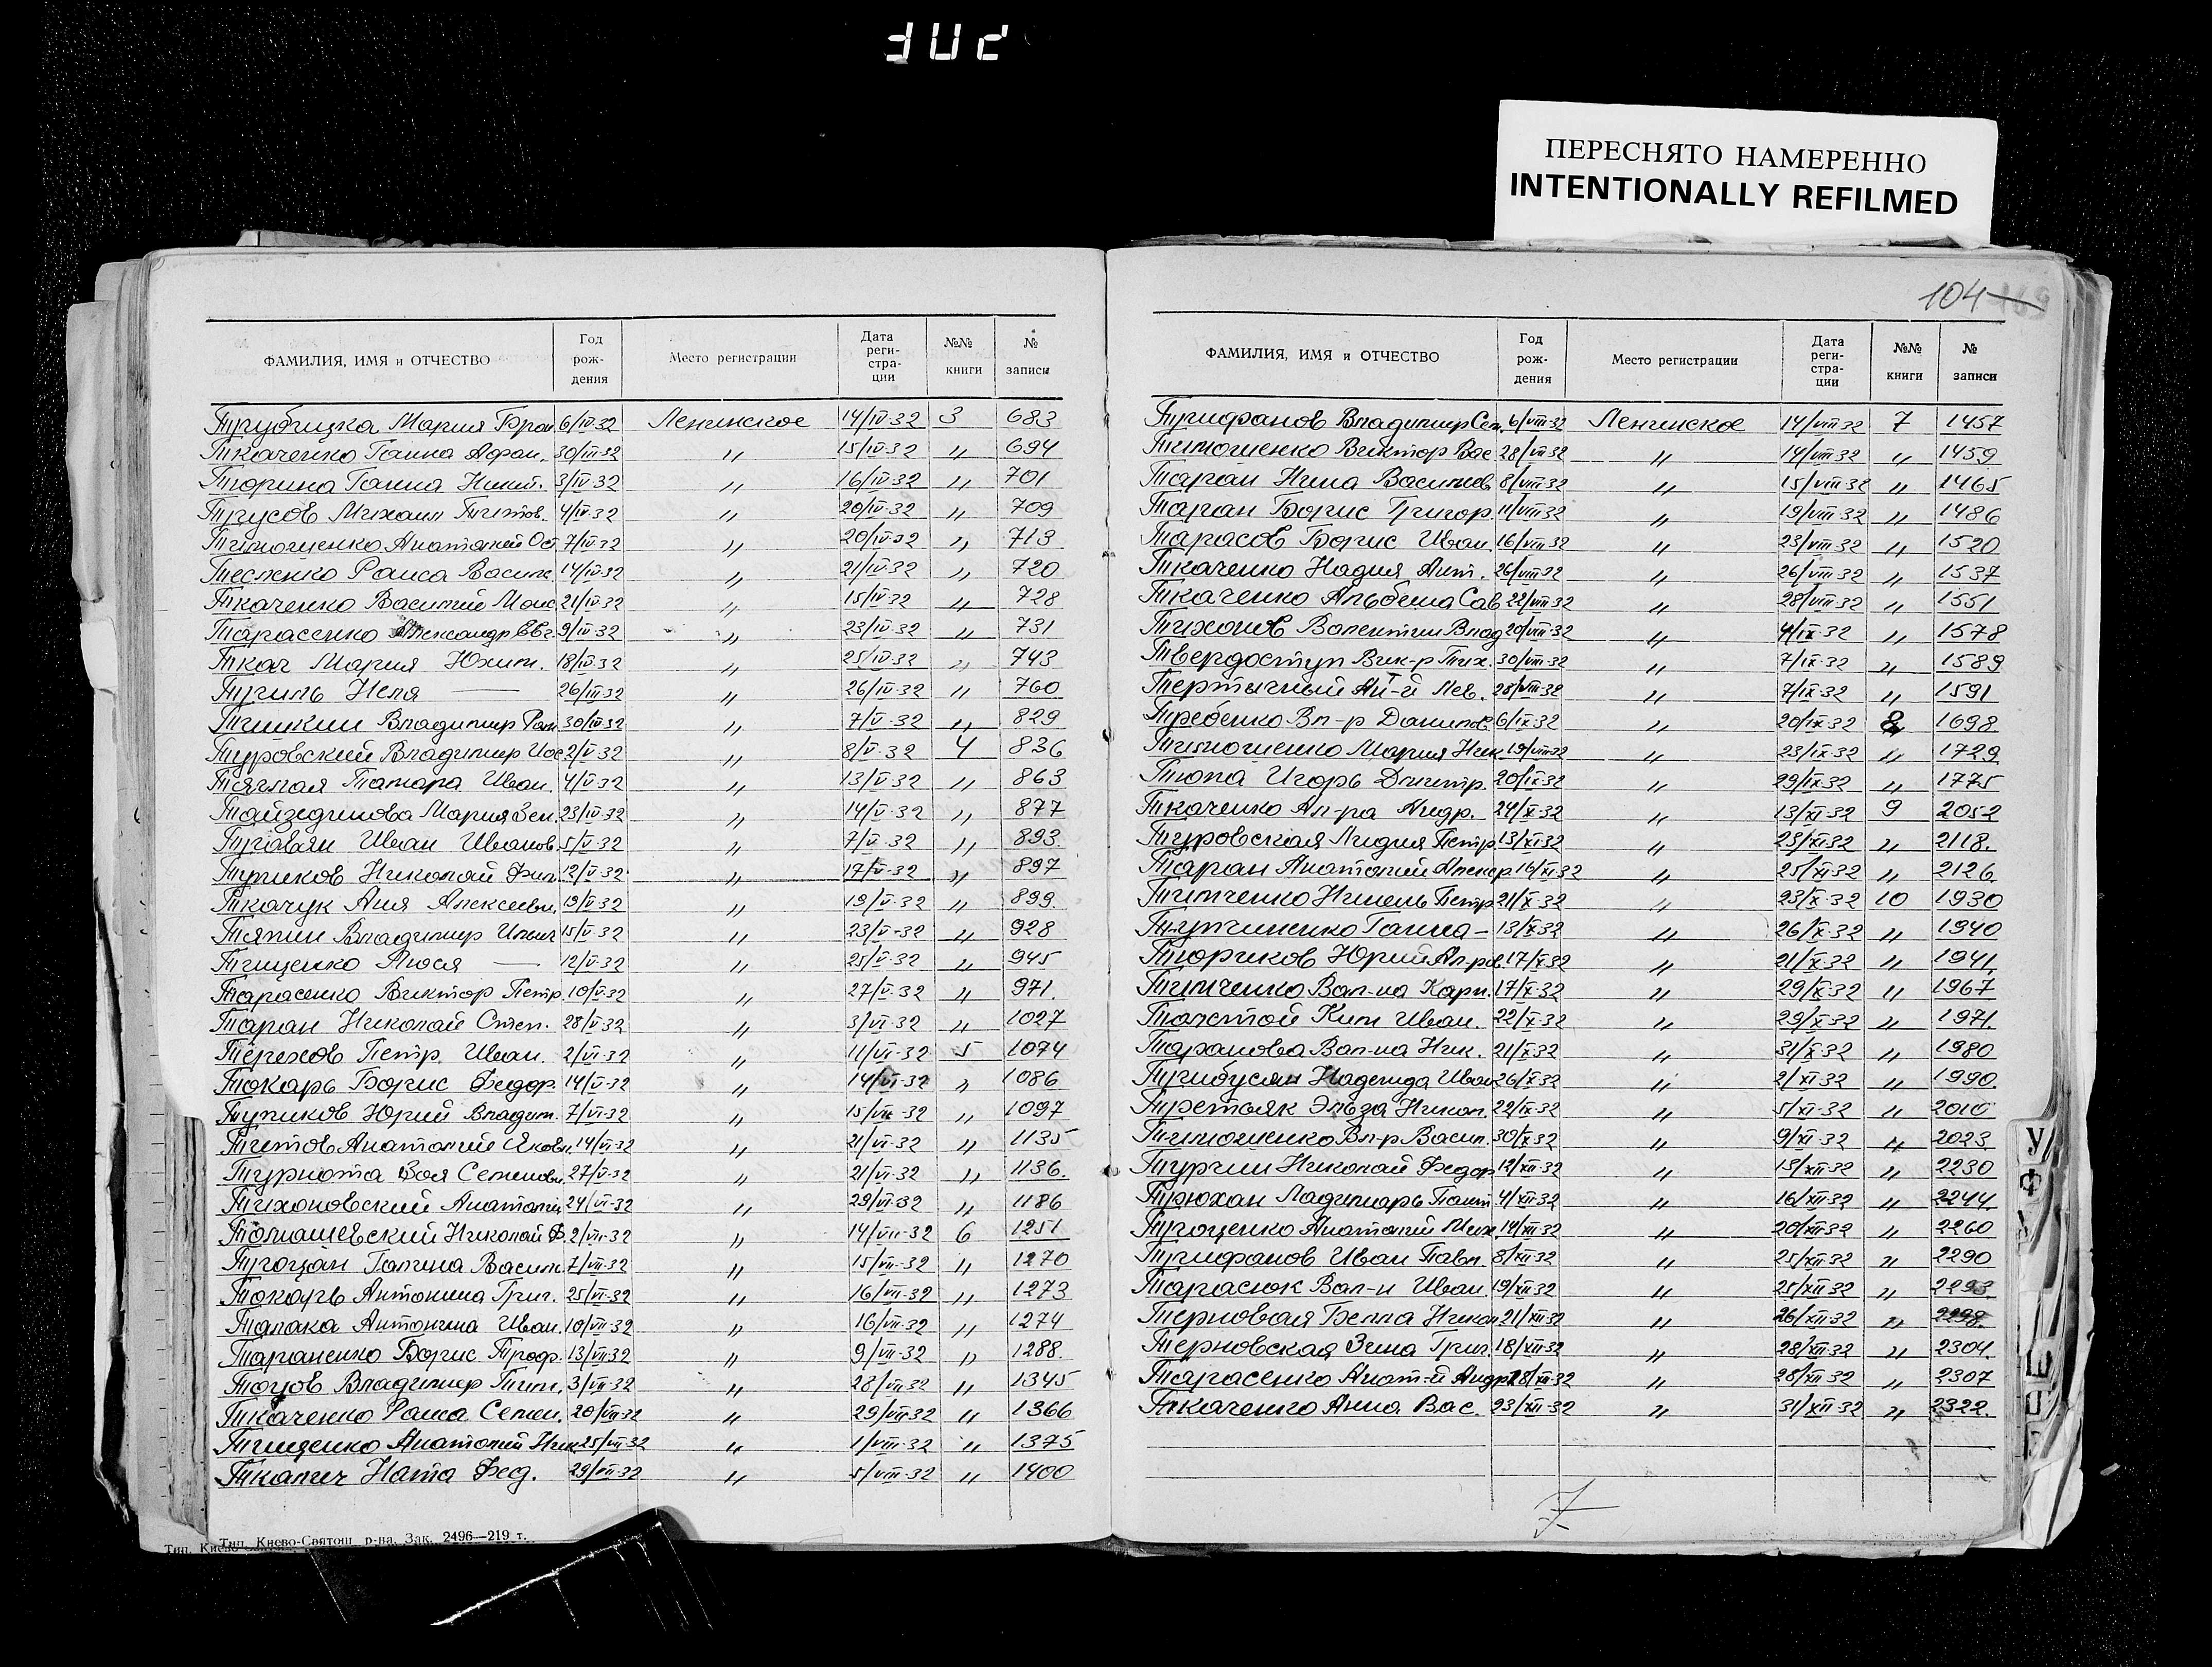 ПЕРЕСНЯТО НАМЕРЕННО
INTENTIONALLY REFILMED
ФАМИЛИЯ, ИМЯ и ОТЧЕСТВО Год рож- дения Место регистрации Дата реги- стра- ции №№ книги № записи
Мария 6/IV-32 Ленинское 14/IV-32 3 683
Ткаченко Ганна Афан. 30/III-32 〃 15/IV-32 〃 694
Тюрина Ганна Никит. 3/IV-32 〃 16/IV-32 〃 701
Трусов Михаил Титов. 4/IV-32 〃 20/IV-32 〃 709
Тимошенко Анатолий Ос 7/IV-32 〃 20/IV-32 〃 713
Тесленко Раиса Васил 14/IV-32 〃 21/IV-32 〃 720
Ткаченко Василий 21/IV-32 〃 15/IV-32 〃 728
Тарасенко Александр Евг 9/IV-32 〃 23/IV-32 〃 731
Ткач Мария Юхим. 18/IV-32 〃 25/IV-32 〃 743
Неля — 26/III-32 〃 26/IV-32 〃 760
Тишкин Владимир 30/IV-32 〃 7/V-32 〃 829
Туровский Владимир Иос 2/V-32 〃 8/V-32 4 836
Тамара Иван. 4/V-32 〃 13/V-32 〃 863
Мария Зен. 23/IV-32 〃 14/V-32 〃 877
Иван Иванов. 5/V-32 〃 7/V-32 〃 893.
Тупиков Николай Фил. 12/V-32 〃 17/V-32 〃 897
Ткачук Ася Алексеевн. 19/V-32 〃 19/V-32 〃 899.
Тяпин Владимир Ильич 15/V-32 〃 23/V-32 〃 928
Тищенко Люся — 12/V-32 〃 25/V-32 〃 945
Тарасенко Виктор Петр. 10/V-32 〃 27/V-32 〃 971.
Таран Николай Степ. 28/V-32 〃 3/VI-32 〃 1027
Терехов Петр. Иван. 2/VI-32 〃 11/VI-32 5 1074
Токарь Борис Федор. 14/V-32 〃 14/VI-32 〃 1086
Тупиков Юрий Владим. 7/VI-32 〃 15/VI-32 〃 1097
Титов Анатолий Яковл. 14/VI-32 〃 21/VI-32 〃 1135
Турнота Зоя Семеновн. 27/V-32 〃 21/VI-32 〃 1136.
Тихоновский Анатолий 24/VI-32 〃 29/VI-32 〃 1186
Томашевский Николай Ф. 2/VII-32 〃 14/VII-32 6 1251
Троцан Галина Васил. 7/VII-32 〃 15/VII-32 〃 1270
Токарь Антонина Григ. 25/VI-32 〃 16/VII-32 〃 1273
Талака Антонина Иван. 10/VII-32 〃 16/VII-32 〃 1274
Тараненко Борис Троф. 13/VII-32 〃 9/VII-32 〃 1288.
Владимир Тим. 3/VII-32 〃 28/VII-32 〃 1345
Ткаченко Раиса Семен. 20/VII-32 〃 29/VII-32 〃 1366
Тищенко Анатолий Ник 25/VII-32 〃 1/VIII-32 〃 1375
Ткалич Ната Фед. 29/VII-32 〃 5/VIII-32 〃 1400
Тип. Киево-Святош. р-на. Зак. 2496—219 т.
Тип. Киево
104
ФАМИЛИЯ, ИМЯ и ОТЧЕСТВО Год рож- дения Место регистрации Дата реги- стра- ции №№ книги № записи
Трифанов Владимир Сем. 6/VIII-32 Ленинское 14/VIII-32 7 1457
Тимошенко Виктор Вас 28/VII-32 〃 14/VIII-32 〃 1459
Таран Нина Васильев 8/VIII-32 〃 15/VIII-32 〃 1465
Таран Борис Григор. 11/VIII-32 〃 19/VIII-32 〃 1486
Тарасов Борис Иван. 16/VIII-32 〃 23/VIII-32 〃 1520
Ткаченко Надия Ант. 26/VIII-32 〃 26/VIII-32 〃 1537
Ткаченко Альбена Сав 22/VIII-32 〃 28/VIII-32 〃 1551
Тихонов Валентин Влад 20/VIII-32 〃 4/IX-32 〃 1578
Твердоступ Вик-р Тих. 30/VIII-32 〃 7/IX-32 〃 1589
Тертычный Ан-й Лев. 28/VIII-32 〃 7/IX-32 〃 1591
Требенко Вл-р Данилов. 6/IX-32 〃 20/IX-32 8 1698.
Тимошенко Мария Ник. 19/VIII-32 〃 23/IX-32 〃 1729
Тюпа Игорь Дмитр. 20/IX-32 〃 29/IX-32 〃 1775
Ткаченко Ал-ра Андр. 24/X-32 〃 13/XI-32 9 2052
Туровская Лидия Петр. 13/XI-32 〃 23/XI-32 〃 2118.
Таран Анатолий Алекср. 16/XI-32 〃 25/XI-32 〃 2126
Тимченко Нинель Петр 21/X-32 〃 23/X-32 10 1930
Ганна — 13/X-32 〃 26/X-32 〃 1940
Тюриков Юрий Ал-ров. 17/X-32 〃 21/X-32 〃 1941
Тимченко Вал-на Карп. 17/X-32 〃 29/X-32 〃 1967
Толстой Ким Иван. 22/X-32 〃 29/X-32 〃 1971.
Таранова Вал-на Ник. 21/X-32 〃 31/X-32 〃 1980
Надежда Иван 26/X-32 〃 2/XI-32 〃 1990.
Третьяк Эльза Никол. 22/IX-32 〃 5/XI-32 〃 2010
Тимошенко Вл-р Васил. 30/X-32 〃 9/XI-32 〃 2023.
Турчин Николай Федор 12/XII-32 〃 13/XII-32 〃 2230
Трюхан Ладимарь Пант 4/XII-32 〃 16/XII-32 〃 2244
Троценко Анатолий Мих. 14/XII-32 〃 20/XII-32 〃 2260
Трифанов Иван Павл. 8/XII-32 〃 25/XII-32 〃 2290
Тарасюк Вал-н Иван. 19/XII-32 〃 25/XII-32 〃 2293.
Терновая Белла Никол 21/XII-32 〃 26/XII-32 〃 2298.
Терновская Зина Григ. 18/XII-32 〃 28/XII-32 〃 2304.
Тарасенко Анат-й Андр. 18/XII-32 〃 28/XII-32 〃 2307
Ткаченко Анна Вас. 23/XII-32 〃 31/XII-32 〃 2322.
У
Ф
Ш